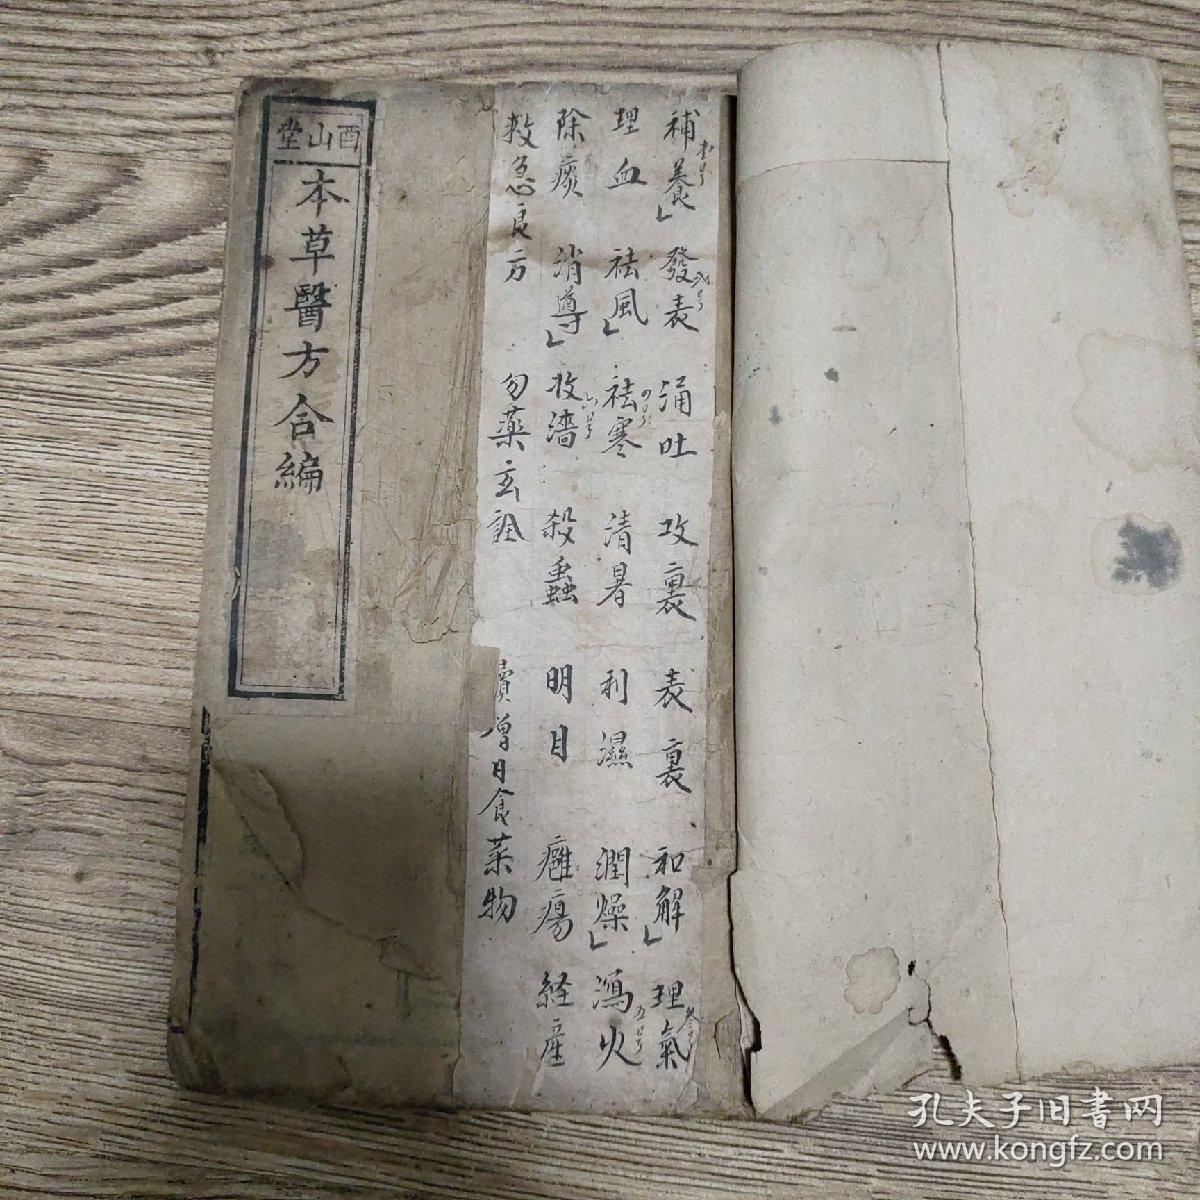 補養 發表 涌吐 攻裏 表裏 和解 理氣
理血 祛風 祛寒 清暑 利濕 潤燥 瀉火
除痰 消導 收濇 殺蟲 明目 癰瘍 経產
救急良方 勿藥玄詮 續增日食菜物
酉山堂
本草醫方合編
孔夫子旧书网
www.kongfz.com